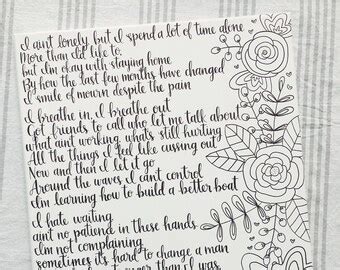 I aint lonely but I spend a lot of time alone
More than Id like to.
but Im okay with staying home
By how the last few months have changed
I smile of mourn despite the pain
I breathe in, I breathe out
Got friends to call who let me talk about
what aint working, whats still hurting
All the things I feel like cussing out
Now and then I let it go
Around the waves I cant control
Im learning how to build a better boat
I hate waiting
aint no patience in these hands
Im not complaining
sometimes its hard to change a man
than I was